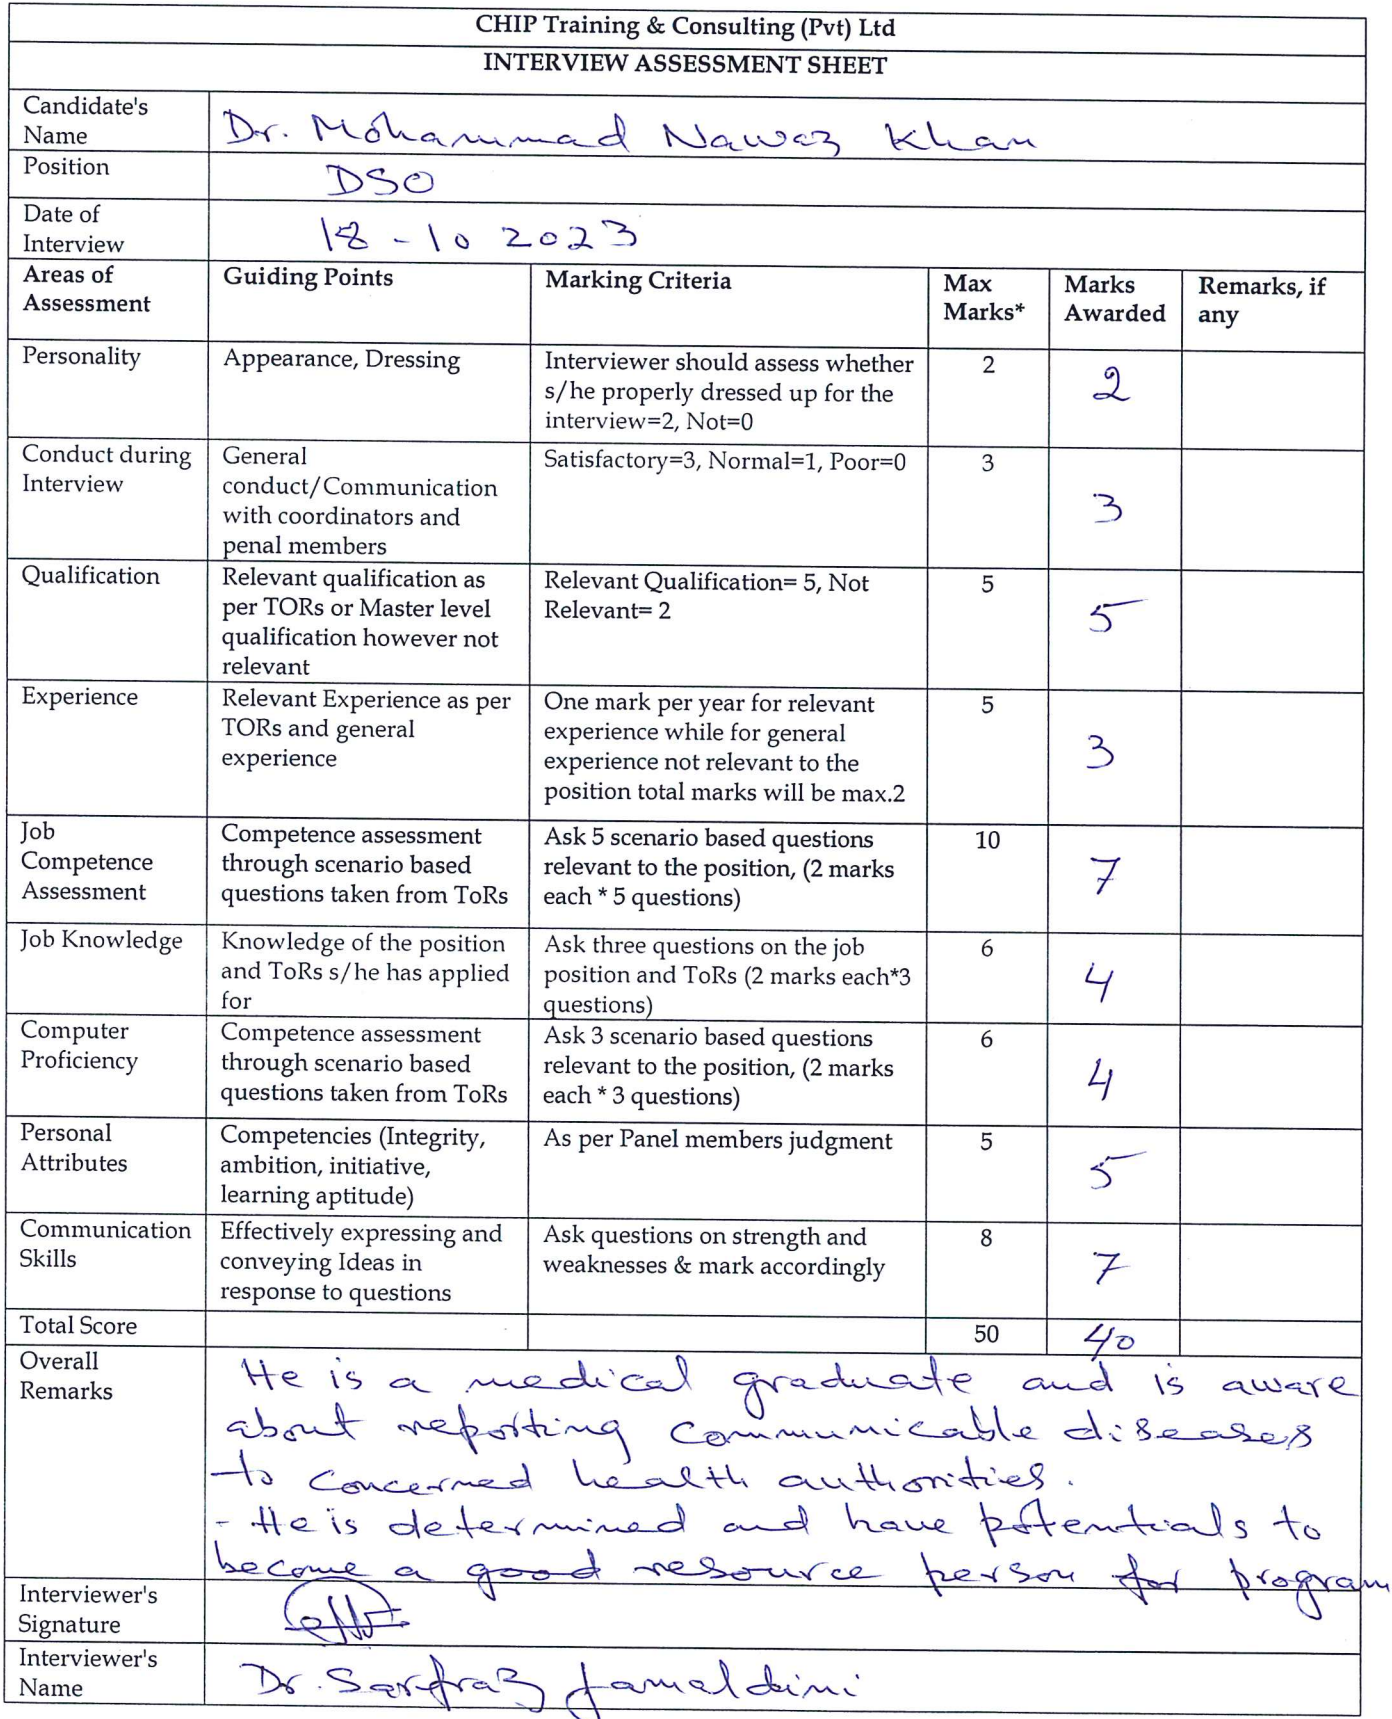 CHIP Training & Consulting (Pvt) Ltd
INTERVIEW ASSESSMENT SHEET
Candidate's Name Dr. Mohammad Nawaz Khan
Position DSO
Date of Interview 18-10 2023
Areas of Assessment Guiding Points Marking Criteria Max Marks* Marks Awarded Remarks, if any
Personality Appearance, Dressing Interviewer should assess whether s/he properly dressed up for the interview=2, Not=0 2 2
Conduct during Interview General conduct/Communication with coordinators and penal members Satisfactory=3, Normal=1, Poor=0 3 3
Qualification Relevant qualification as per TORs or Master level qualification however not relevant Relevant Qualification= 5, Not Relevant= 2 5 5
Experience Relevant Experience as per TORs and general experience One mark per year for relevant experience while for general experience not relevant to the position total marks will be max.2 5 3
Job Competence Assessment Competence assessment through scenario based questions taken from ToRs Ask 5 scenario based questions relevant to the position, (2 marks each * 5 questions) 10 7
Job Knowledge Knowledge of the position and ToRs s/he has applied for Ask three questions on the job position and ToRs (2 marks each*3 questions) 6 4
Computer Proficiency Competence assessment through scenario based questions taken from ToRs Ask 3 scenario based questions relevant to the position, (2 marks each * 3 questions) 6 4
Personal Attributes Competencies (Integrity, ambition, initiative, learning aptitude) As per Panel members judgment 5 5
Communication Skills Effectively expressing and conveying Ideas in response to questions Ask questions on strength and weaknesses & mark accordingly 8 7
Total Score 50 40
Overall Remarks
He is a medical graduate and is aware
about reporting communicable diseases
to concerned health authorities.
- He is determined and have potentials to
become a good resource person for program
Interviewer's Signature
Interviewer's Name Dr. Sarfraz Jamaldini